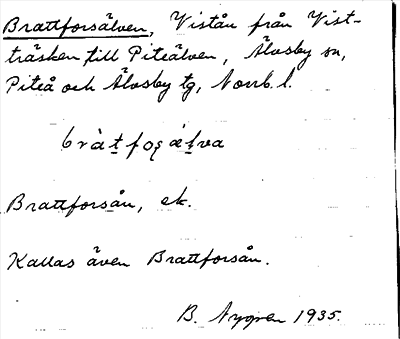 Brattforsälven, Vistån från Vist-
träsken till Piteälven, Älvsby sn,
Piteå och Älvsby tg, Norrb. l.
Brattforsån, ek.
Kallas även Brattforsån.
B. Nygren 1935.